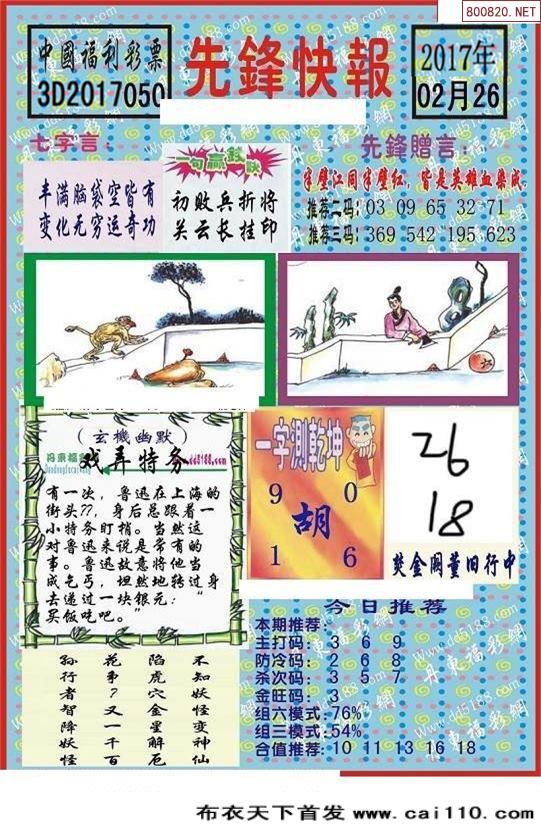 800820.NET
中國福利彩票
3D2017050
先鋒快報
2017年
02月26
七字言：
丰满脑袋空皆有
变化无穷运奇功
一句赢钱诀
初败兵折将
关云长挂印
先鋒贈言：
半壁江同半壁红，皆是英雄血染成
推荐二码：03 09 65 32 71
推荐三码：369 542 195 623
（玄機幽默）
戏弄特务
有一次，鲁迅在上海的
街头??，身后总跟着一
小特务盯梢。当然这
对鲁迅来说是常有的
事。鲁迅故意将他当
成乞丐，坦然地转过身
去递过一块银元：“
买饭吃吧。”
一字測乾坤
9 0
胡
1 6
26
18
焚金阙董旧行中
今日推荐
本期推荐：
主打码：3 6 9
防冷码：2 6 8
杀次码：3 5 7
金旺码：3
组六模式：76%
组三模式：54%
合值推荐：10 11 13 16 18
孙行者智降妖怪
花事?又一千百
陷虎穴金星解厄
不知妖怪变神仙
www.dd5188.com
丹東福彩網
布衣天下首发 www.cai110.com